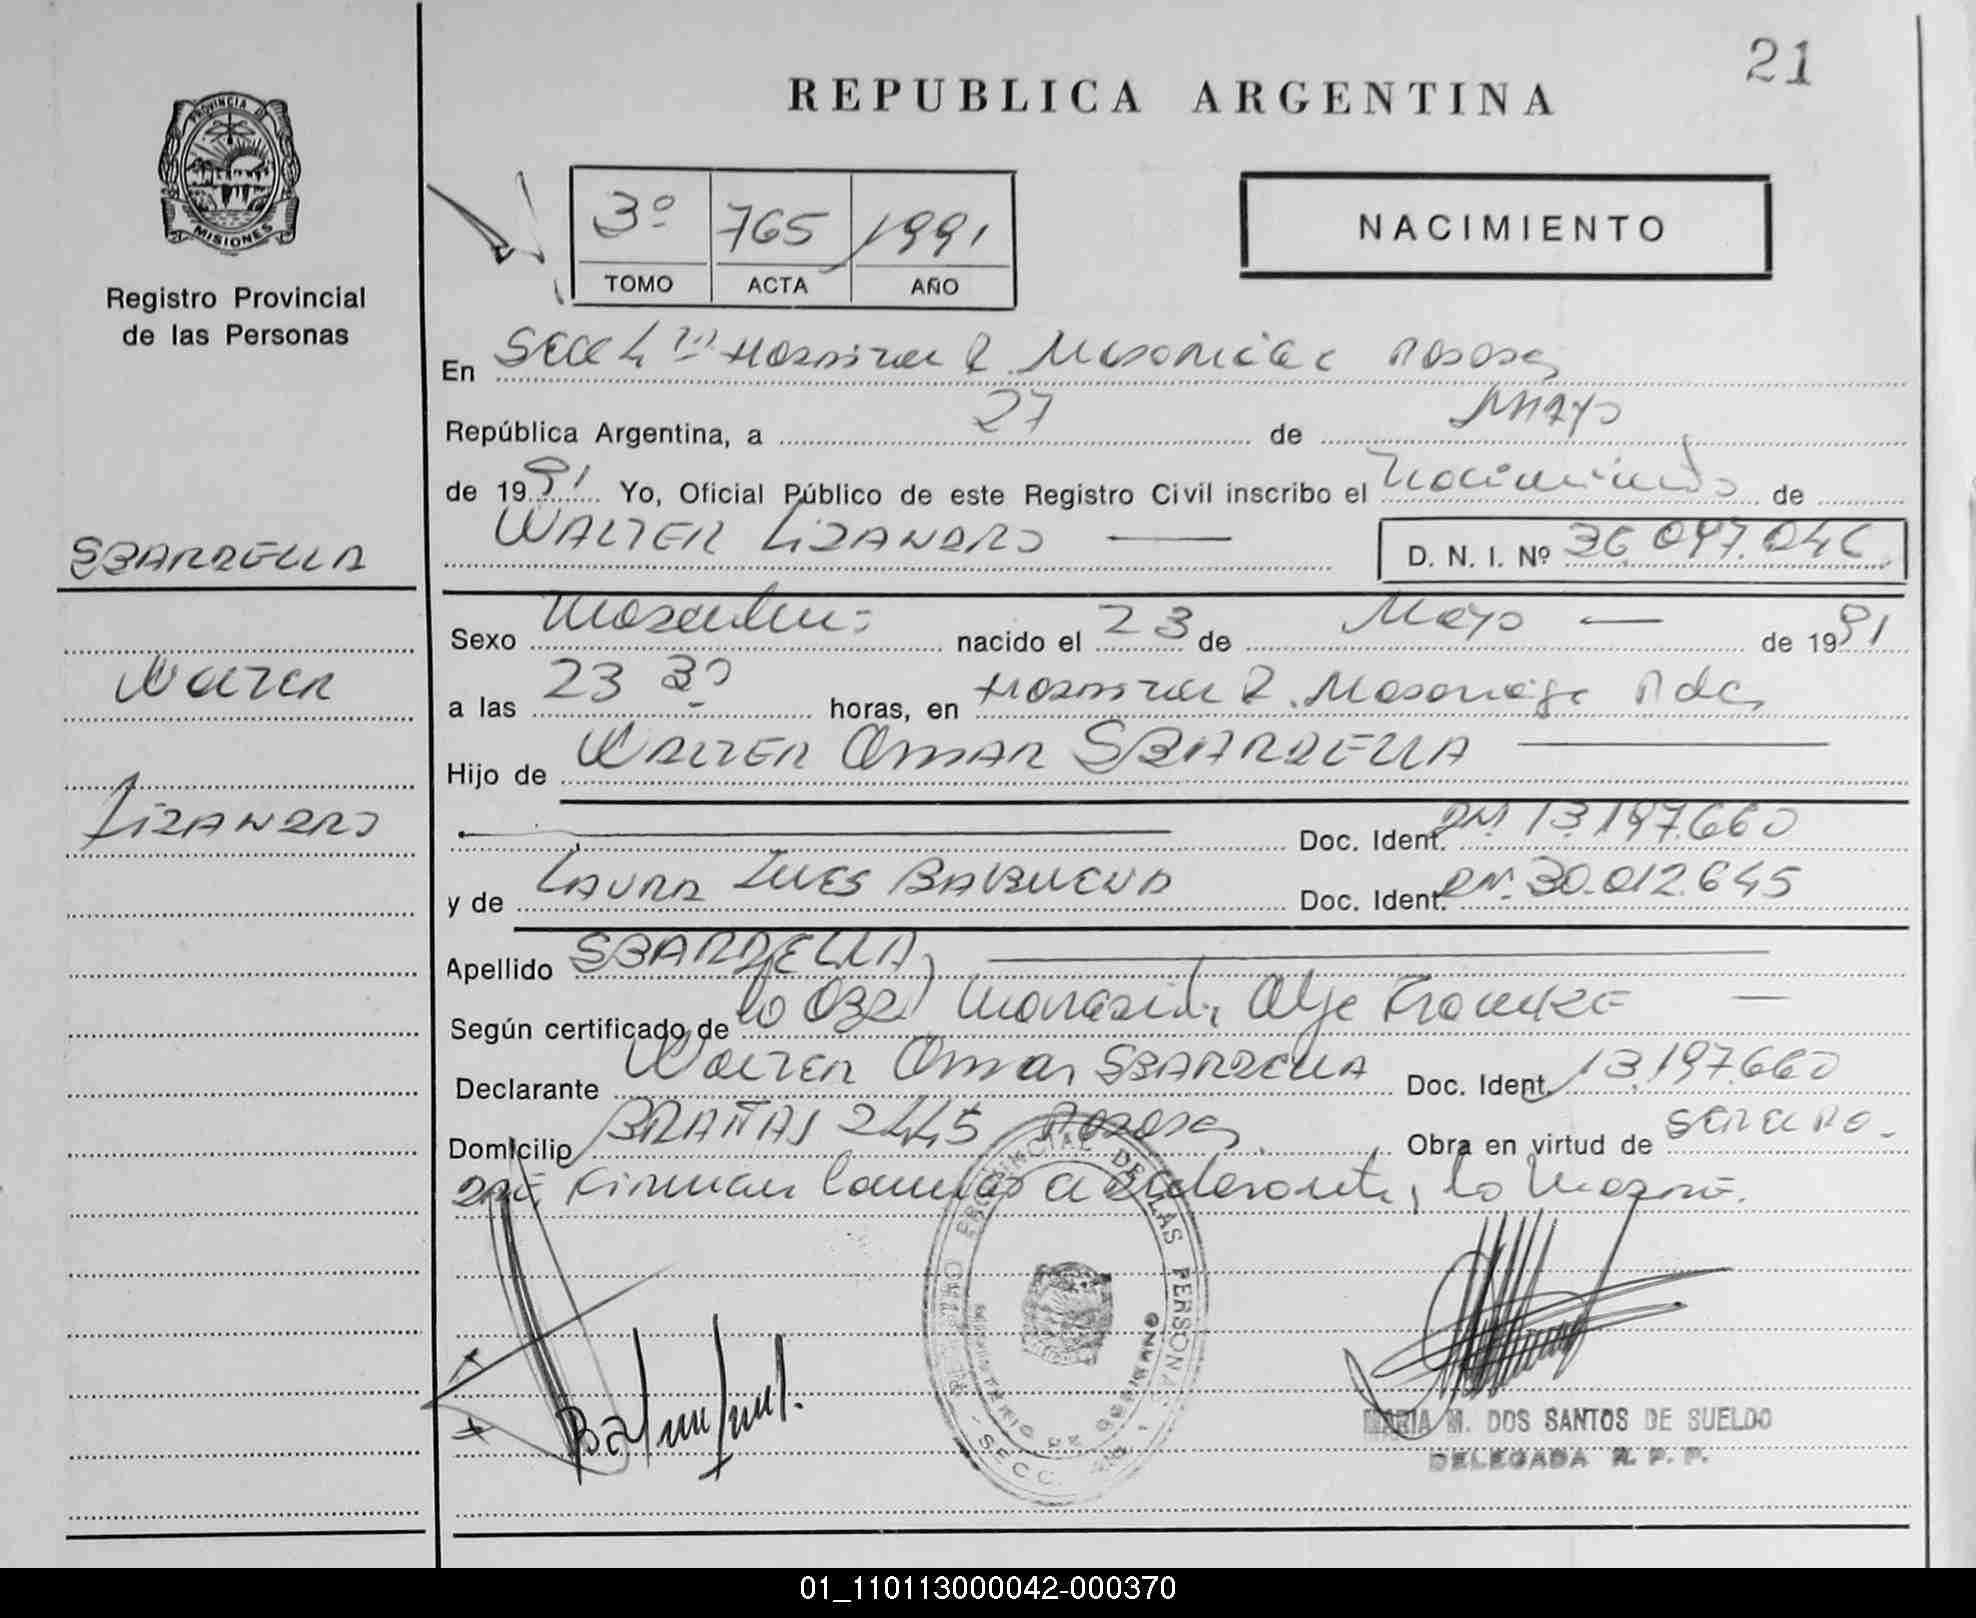 21
REPUBLICA ARGENTINA
PROVINCIA DE
MISIONES
Registro Provincial
de las Personas
3º 765 1991
TOMO ACTA AÑO
NACIMIENTO
En Secc 4ta Hospital R. Madariaga Posadas
República Argentina, a 27 de Mayo
de 1991 Yo, Oficial Público de este Registro Civil inscribo el Nacimiento de
WALTER LIZANDRO
D. N. I. Nº 36.097.046
SBARDELLA
Walter
LIZANDRO
Sexo Masculino nacido el 23 de Mayo de 1991
a las 23 30 horas, en Hospital R. Madariaga Pdas
Hijo de WALTER OMAR SBARDELLA
Doc. Ident. DNI 13.197.660
y de LAURA INES BALBUENA Doc. Ident. DNI 30.012.645
Apellido SBARDELLA
Según certificado de la Obst. Olga
Declarante Walter Omar SBARDELLA Doc. Ident. 13.197.660
Domicilio BRAÑAS 2445 Posadas Obra en virtud de
Firman la madre
REGISTRO PROVINCIAL DE LAS PERSONAS
MINISTERIO DE GOBIERNO
SECC.
MARIA M. DOS SANTOS DE SUELDO
DELEGADA R. P. P.
01_110113000042-000370